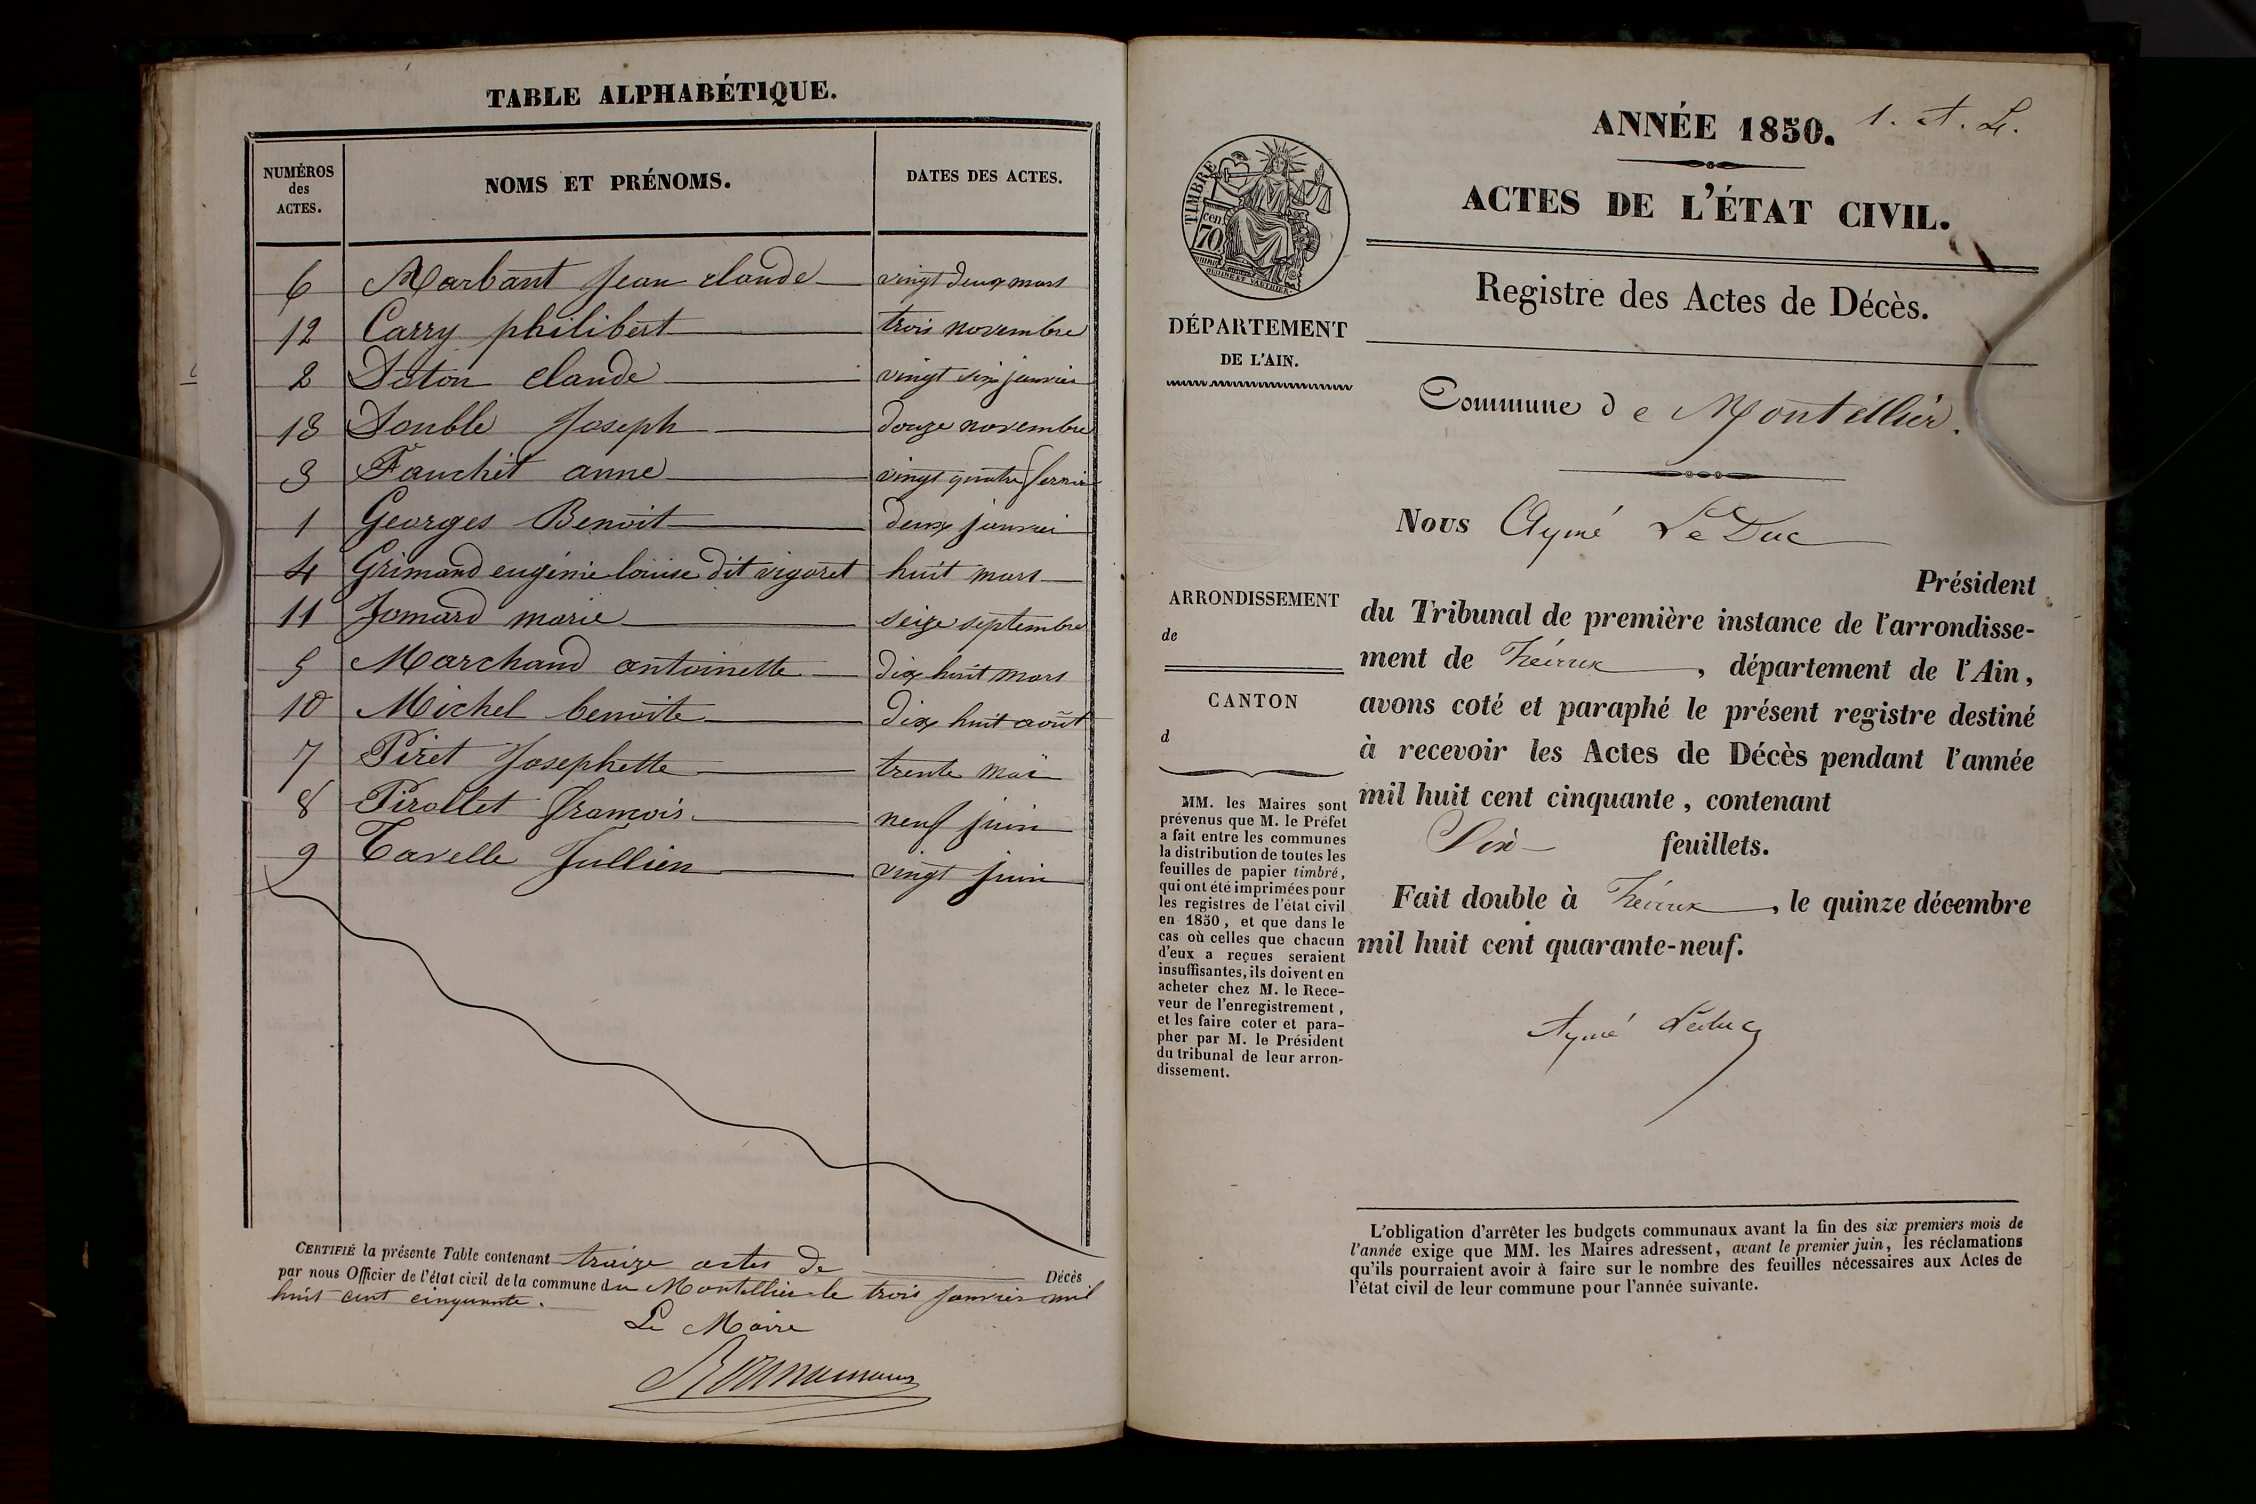 TABLE ALPHABÉTIQUE.
NUMÉROS des ACTES.
NOMS ET PRÉNOMS.
DATES DES ACTES.
6 Marbant Jean claude vingt deux mars
12 Carry philibert trois novembre
2 claude vingt six janvier
13 Double Joseph douze novembre
3 Fauchet anne vingt quatre fevrier
1 Georges Benoit deux janvier
4 Grimand eugénie louise dit vigoret huit mars
11 Jomard marie seize septembre
5 Marchand antoinette dix huit mars
10 Michel benoite dix huit août
7 Piret Josephette trente mai
8 Pirollet francois neuf juin
9 Tavelle Jullien vingt juin
CERTIFIÉ la présente Table contenant traize actes de Décès
par nous Officier de l'état civil de la commune du Montellier le trois janvier mil
huit cent cinquante.
Le Maire
ANNÉE 1850. 1. A. L.
ACTES DE L'ÉTAT CIVIL.
Registre des Actes de Décès.
TIMBRE
70 cen
DÉPARTEMENT
DE L'AIN.
Commune de Montellier.
Nous Aymé Le Duc
Président
du Tribunal de première instance de l'arrondisse-
ment de Trévoux, département de l'Ain,
avons coté et paraphé le présent registre destiné
à recevoir les Actes de Décès pendant l'année
mil huit cent cinquante, contenant
feuillets.
Fait double à Trévoux, le quinze décembre
mil huit cent quarante-neuf.
Aymé Leduc
ARRONDISSEMENT
de
CANTON
d
MM. les Maires sont
prévenus que M. le Préfet
a fait entre les communes
la distribution de toutes les
feuilles de papier timbré,
qui ont été imprimées pour
les registres de l'état civil
en 1850, et que dans le
cas où celles que chacun
d'eux a reçues seraient
insuffisantes, ils doivent en
acheter chez M. le Rece-
veur de l'enregistrement,
et les faire coter et para-
pher par M. le Président
du tribunal de leur arron-
dissement.
L'obligation d'arrêter les budgets communaux avant la fin des six premiers mois de
l'année exige que MM. les Maires adressent, avant le premier juin, les réclamations
qu'ils pourraient avoir à faire sur le nombre des feuilles nécessaires aux Actes de
l'état civil de leur commune pour l'année suivante.